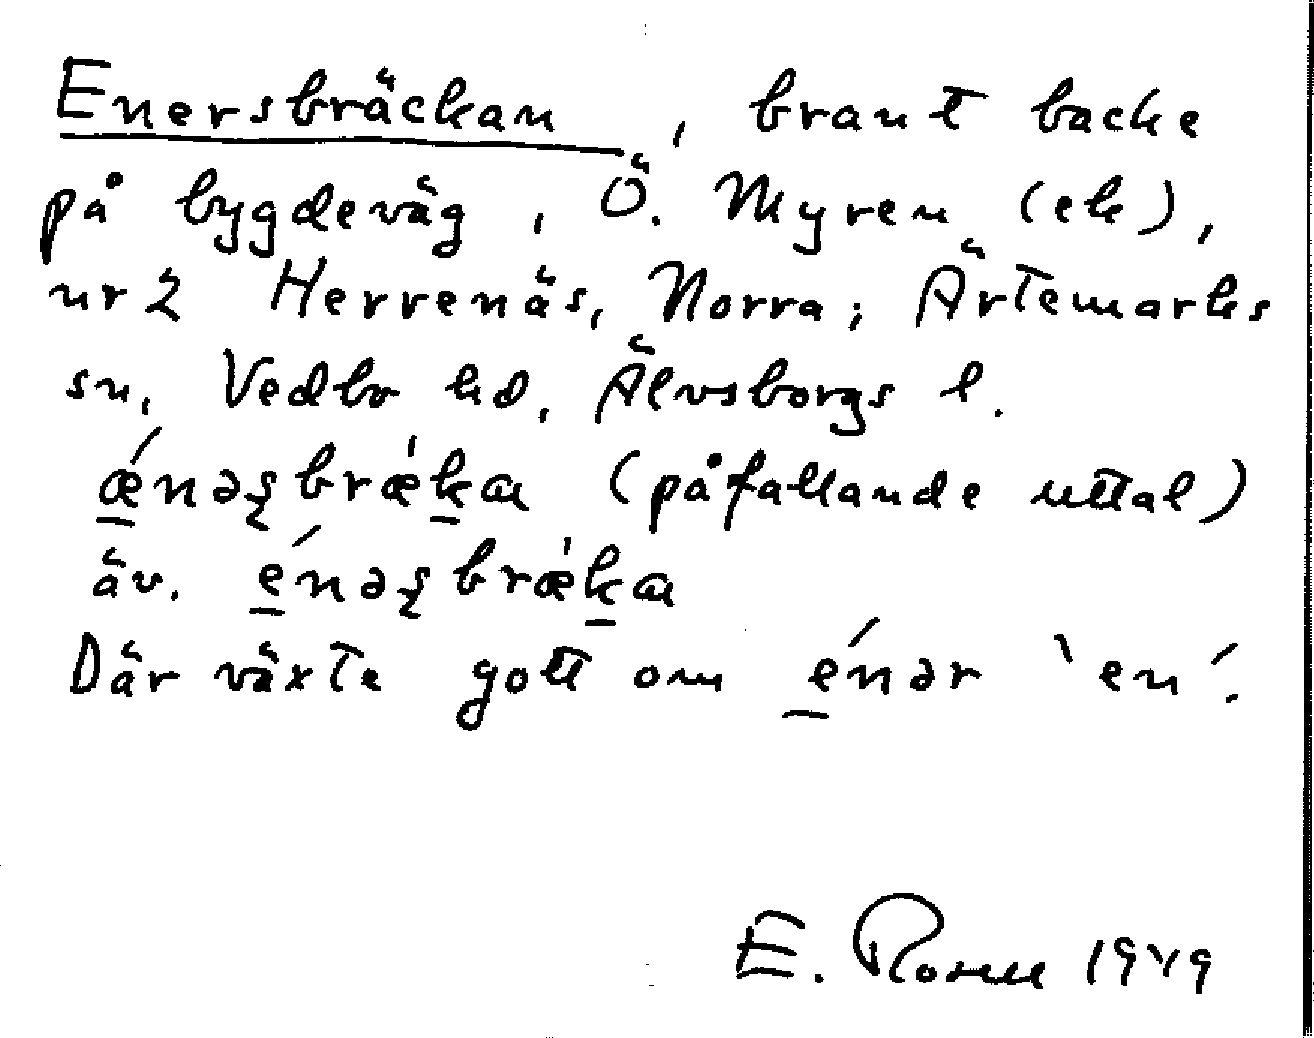 Enersbräckan, brant backe
på bygdeväg, Ö. Myren (ek),
nr 2 Herrenäs, Norra; Ärtemarks
sn, Vedbo hd, Älvsborgs l.
ǽnəʂbrækɑ (påfallande uttal)
äv. énəʂbrækɑ
Där växte gott om énər 'en'.
E. Rosell 1949